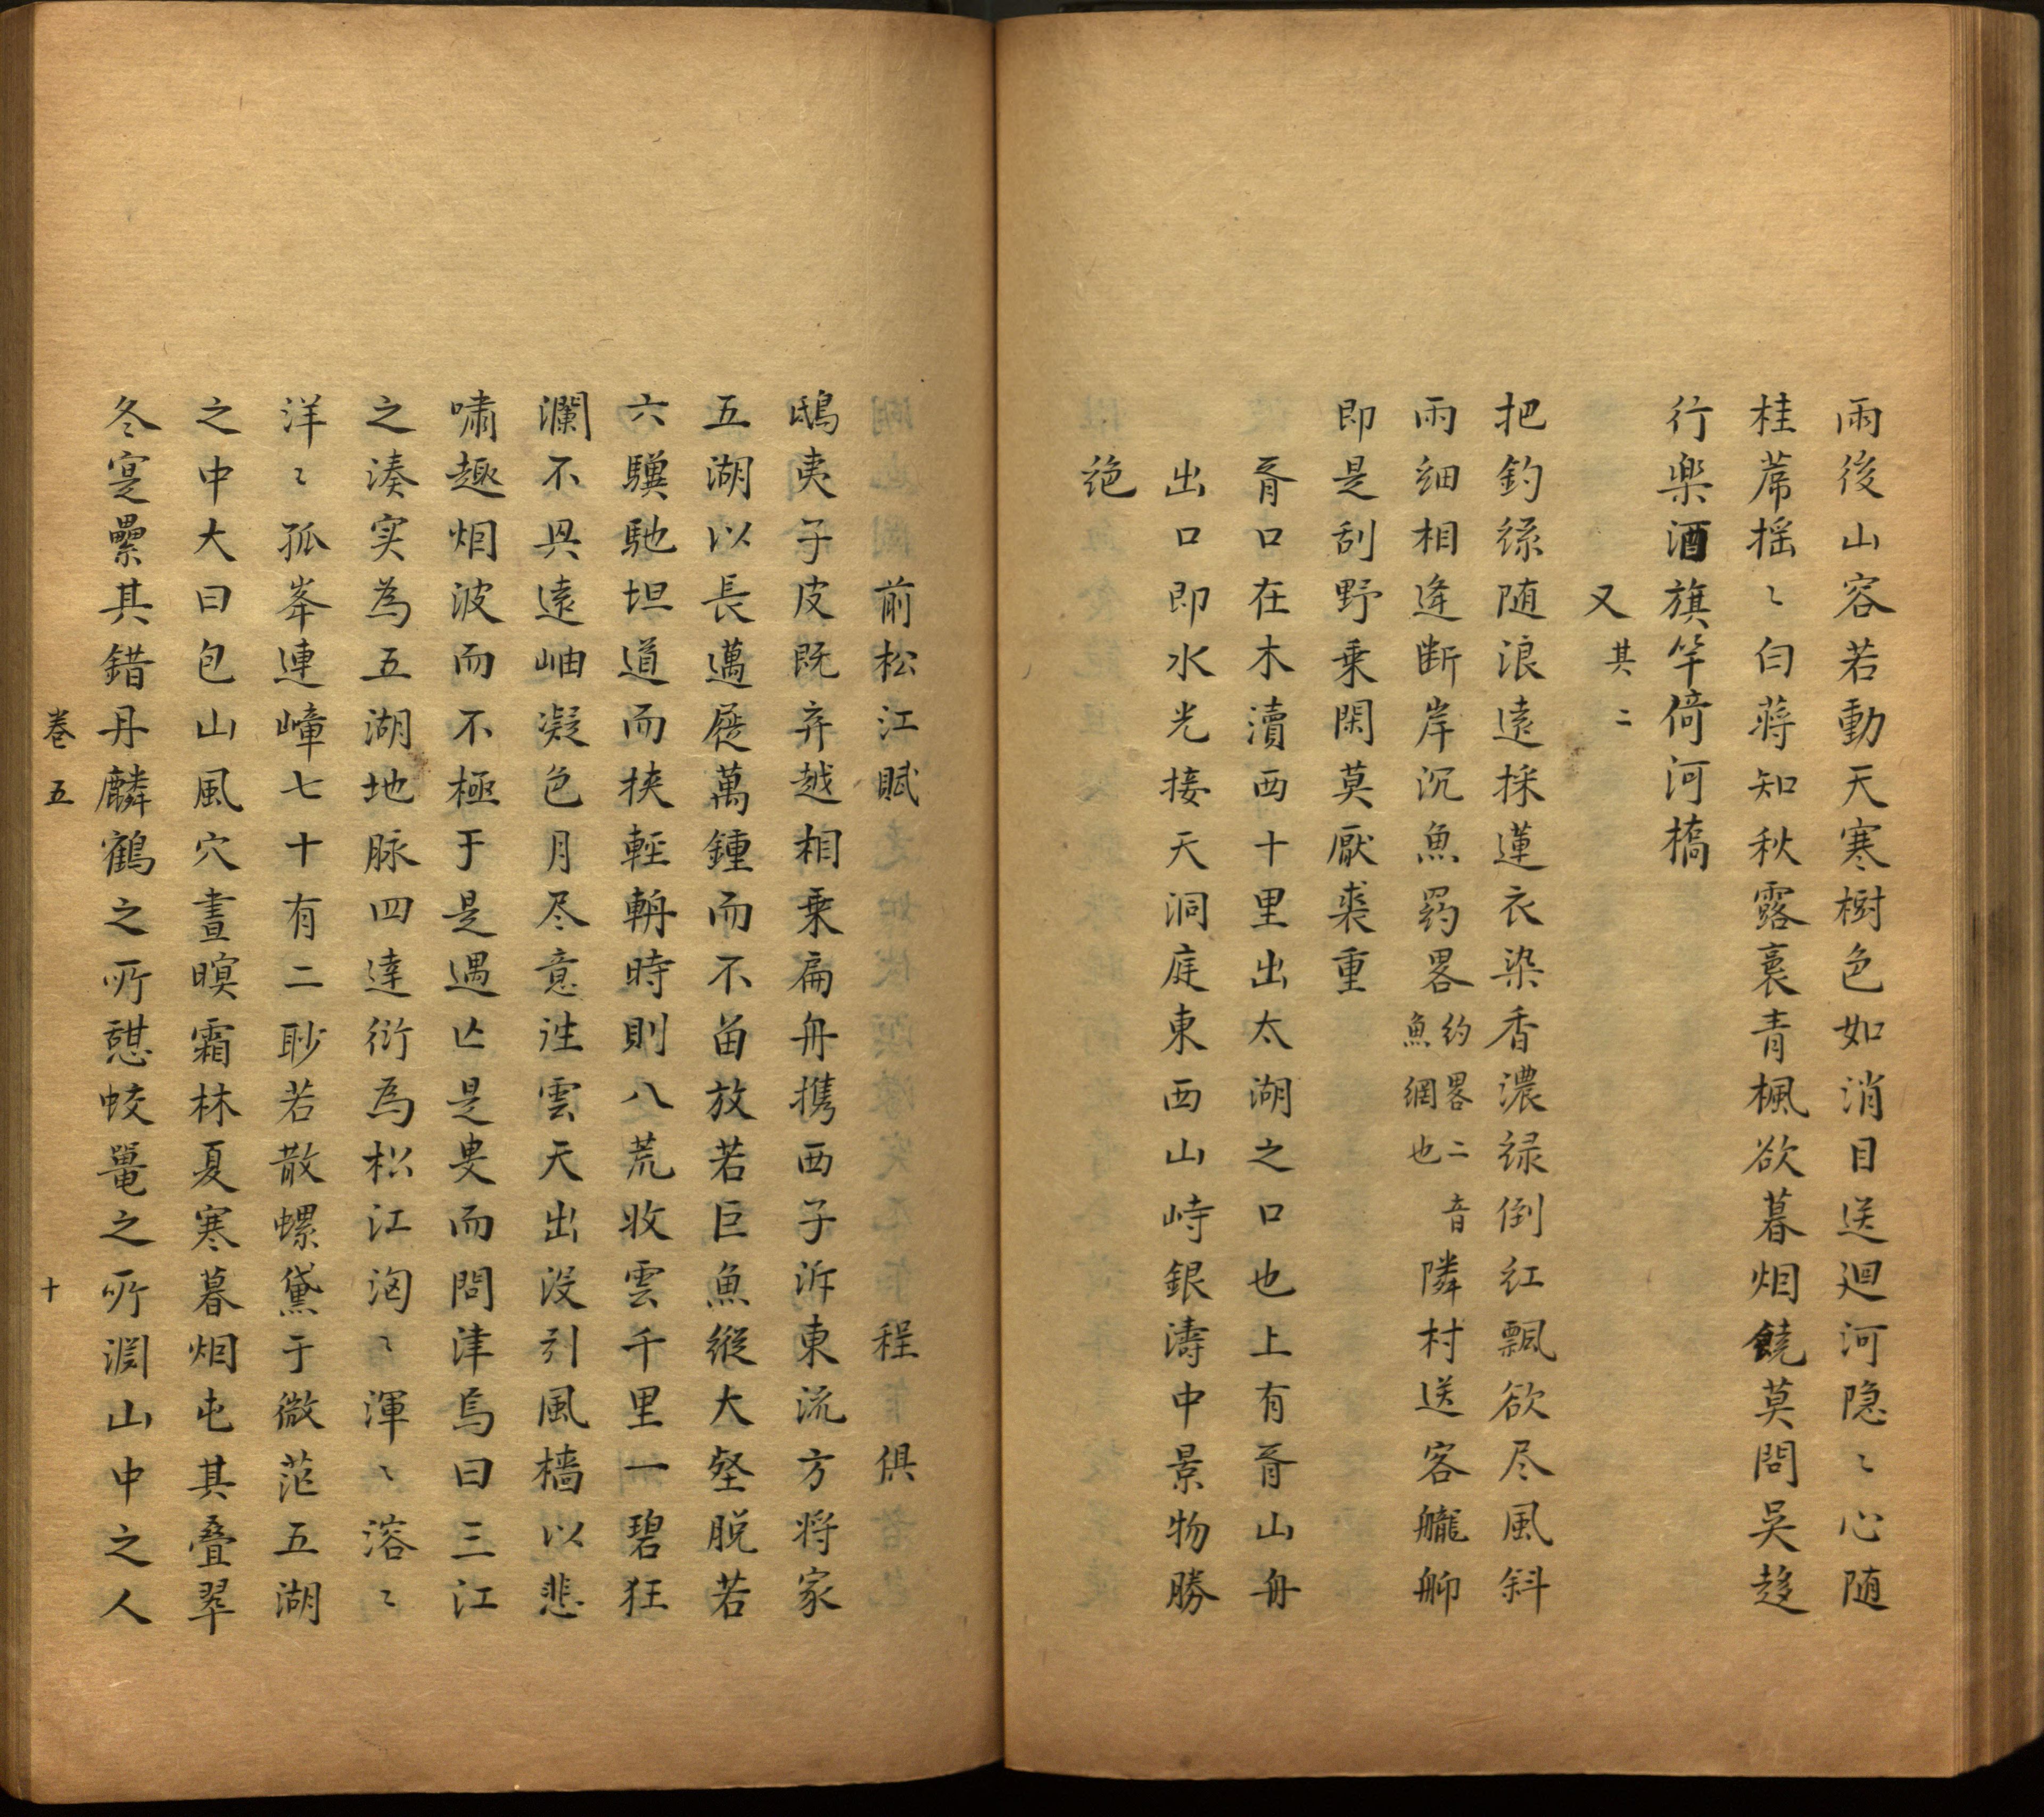 雨後山容若動天寒樹色如消目送迴河隐〻心随
桂蓆揺〻白蔣知秋露裏青楓欲暮烟饒莫問吴趍
行楽酒旗竿倚河橋
又其二
把釣絲随浪遠採蓮衣染香濃緑倒紅飄欲尽風斜
雨細相逢断岸沉魚䍚畧約畧二音魚網也隣村送客艫舺
即是刮野乗閑莫厭裘重
胥口在木瀆西十里出太湖之口也上有胥山舟
出口即水光接天洞庭東西山峙銀濤中景物勝
絶
前松江賦 程俱
鴟夷子皮既弃越相乗扁舟携西子泝東流方将家
五湖以長邁屣萬鍾而不㽞放若巨魚縦大壑脱若
六驥馳坦道而挟輕輈時則八荒收雲千里一碧狂
瀾不興遠岫凝色月尽意往雲天出没引風檣以悲
嘯趣烟波而不極于是遇亡是叟而問津焉曰三江
之湊实為五湖地脉四達衍為松江洶〻渾〻溶〻
洋〻孤峯連嶂七十有二眇若散螺黛于微茫五湖
之中大曰包山風穴晝暝霜林夏寒暮烟屯其叠翠
冬寔纍其錯丹麟鶴之所憇蛟鼍之所淵山中之人
卷五 十